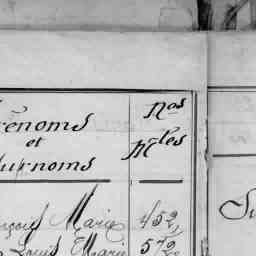 rénoms
et
urnoms
Nos
Mles
nçois Marie 452
Louis Marie 572
Su